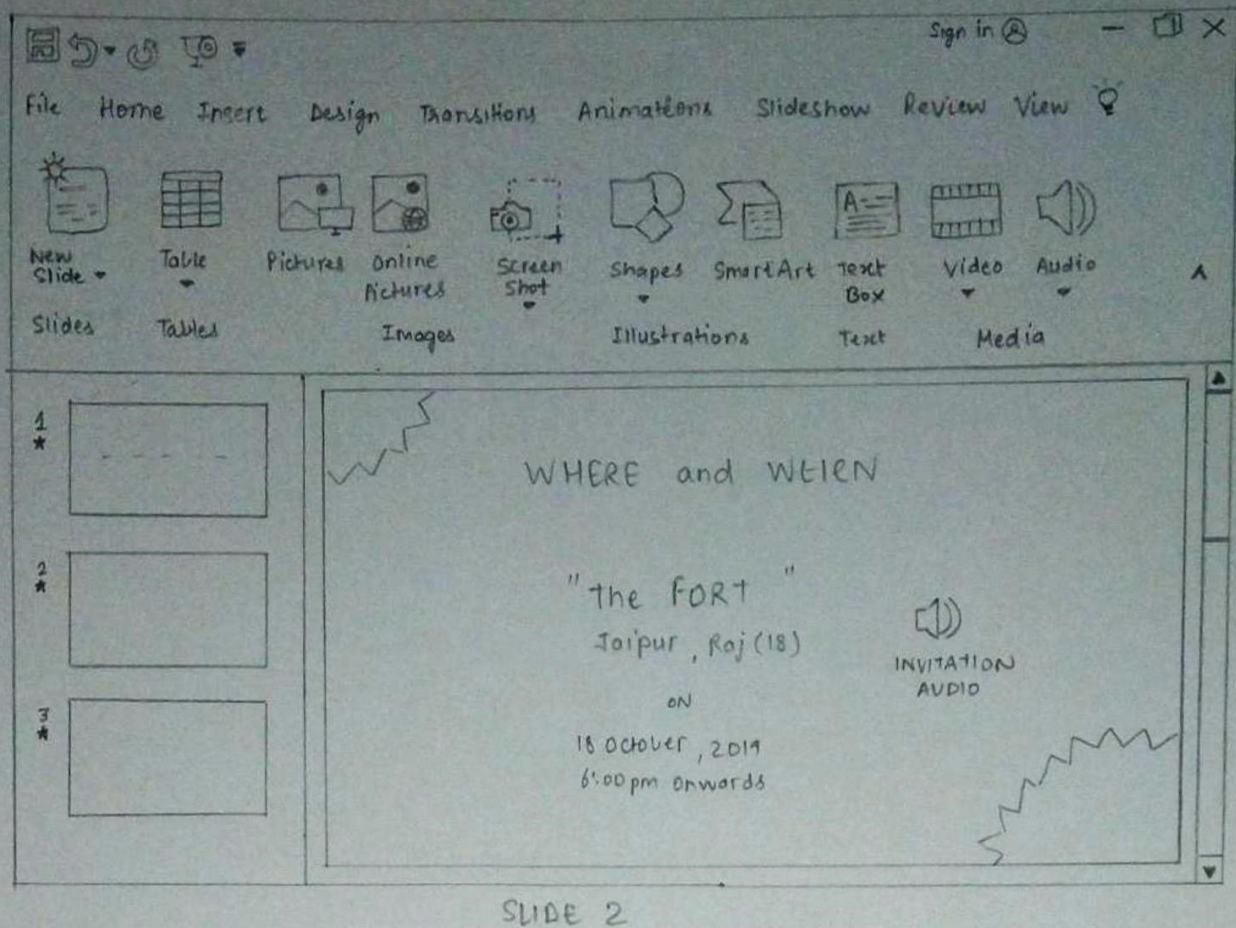 Sign in
File Home Insert Design Transitions Animations Slideshow Review View
New Slide
Table
Pictures
Online Pictures
Screen Shot
Shapes
SmartArt
Text Box
Video
Audio
Slides
Tables
Images
Illustrations
Text
Media
1
2
3
WHERE and WHEN
"the FORT"
Jaipur, Raj (18)
ON
18 October, 2019
6:00 pm onwards
INVITATION
AUDIO
SLIDE 2